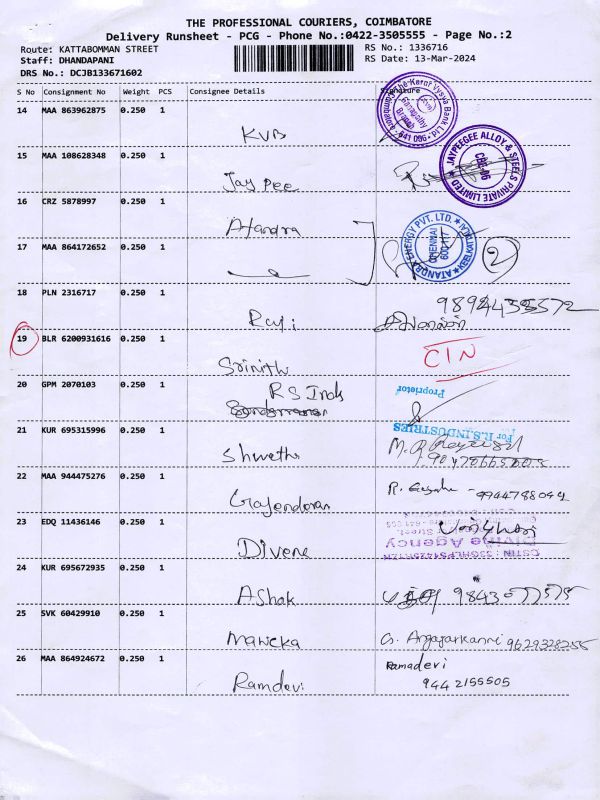 THE PROFESSIONAL COURIERS, COIMBATORE
Delivery Runsheet - PCG - Phone No.:0422-3505555 - Page No.:2
Route: KATTABOMMAN STREET RS No.: 1336716
Staff: DHANDAPANI RS Date: 13-Mar-2024
DRS No.: DCJB133671602
S No Consignment No Weight PCS Consignee Details Signature
14 MAA 863962875 0.250 1 KVB
15 MAA 108628348 0.250 1 Jay Pee
JAYPEEGEE ALLOY & STEELS PRIVATE LIMITED
16 CRZ 5878997 0.250 1 Atandra
ATANDRA ENERGY PVT. LTD.
CHENNAI
17 MAA 864172652 0.250 1 2
18 PLN 2316717 0.250 1 Raji
19 BLR 6200931616 0.250 1 Srinith CIN
20 GPM 2070103 0.250 1 RS Inds
Proprietor
For R.S.INDUSTRIES
21 KUR 695315996 0.250 1 Shwetha
22 MAA 944475276 0.250 1 Gajendoran
23 EDQ 11436146 0.250 1 Divene
Divine Agency
24 KUR 695672935 0.250 1 AShok
25 SVK 60429910 0.250 1 9629328255
26 MAA 864924672 0.250 1 Ramdevi Ramadevi
9442155505